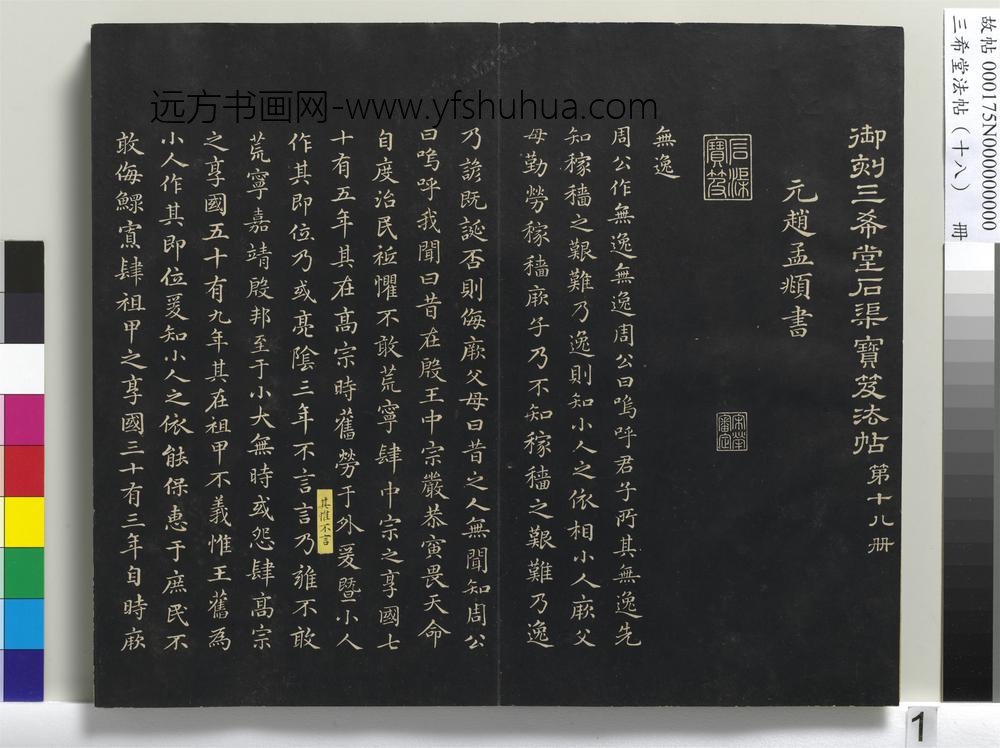 故帖 000175N000000000
三希堂法帖（十八） 冊
远方书画网-www.yfshuhua.com
御刻三希堂石渠寶笈法帖第十八册
元趙孟頫書
石渠寶笈
宋犖審定
無逸
周公作無逸無逸周公曰嗚呼君子所其無逸先
知稼穡之艱難乃逸則知小人之依相小人厥父
母勤勞稼穡厥子乃不知稼穡之艱難乃逸
乃諺既誕否則侮厥父母曰昔之人無聞知周公
曰嗚呼我聞曰昔在殷王中宗嚴恭寅畏天命
自度治民祗懼不敢荒寧肆中宗之享國七
十有五年其在高宗時舊勞于外爰暨小人
作其即位乃或亮陰三年不言言乃雍不敢
其惟不言
荒寧嘉靖殷邦至于小大無時或怨肆高宗
之享國五十有九年其在祖甲不義惟王舊為
小人作其即位爰知小人之依能保惠于庶民不
敢侮鰥寡肆祖甲之享國三十有三年自時厥
1